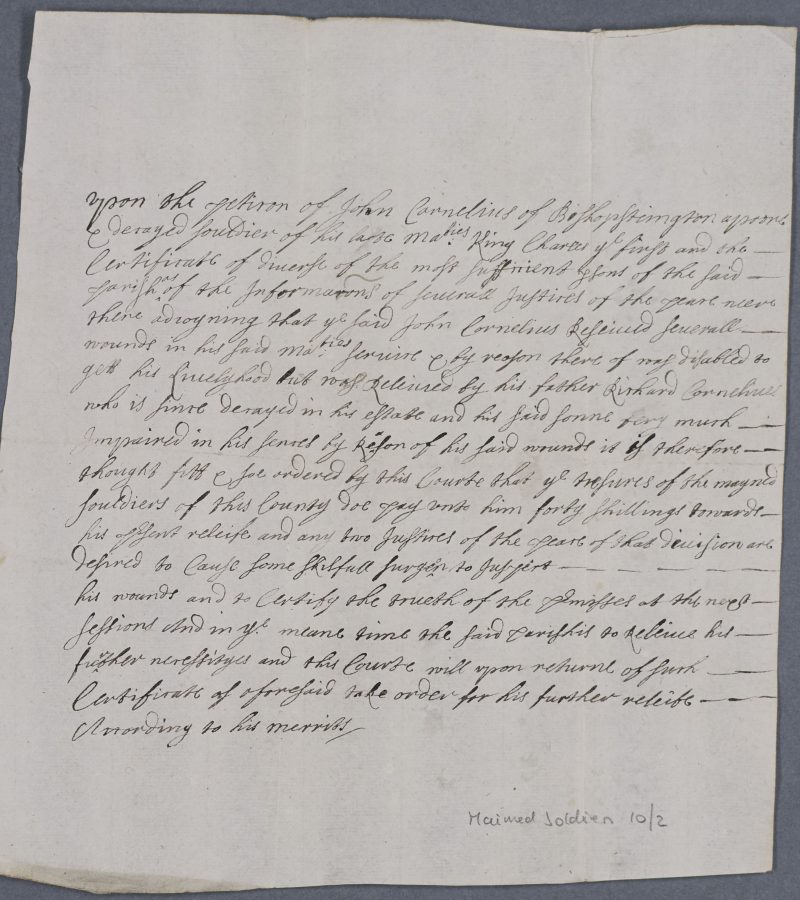 vpon the peticon of John Cornelius of Bishopsteington a poore
& decayed souldier of his late Ma:ties King Charles ye first and the —
Certificate of diverse of the most sufficient psons of the said —
parish as of the Informacons of severall Justices of the peace neere
there adioyning that ye said John Cornelius Received severall —
wounds in his said Ma:ties service & by reason there of was disabled to
gett his Livelyhood but was Releived by his father Richard Cornelius
who is since decayed in his estate and his said sonne very much —
Impaired in his sences by Reson of his said wounds it is therefore —
thought fitt & soe ordered by this Courte that ye tresurer of the maymed
souldiers of this County doe pay vnto him forty shillings towards —
his psent releife and any two Justices of the peace of that devision are
desired to Cause some skilfull surgen to Inspect — — — — —
his wounds and to Certify the trueth of the pmisses at the next —
sessions And in ye meane time the said parish is to Releive his —
further necessityes and this Courte will vpon returne of such —
Certificate as aforesaid take order for his further releife — —
According to his merrits
Maimed Soldiers 10/2